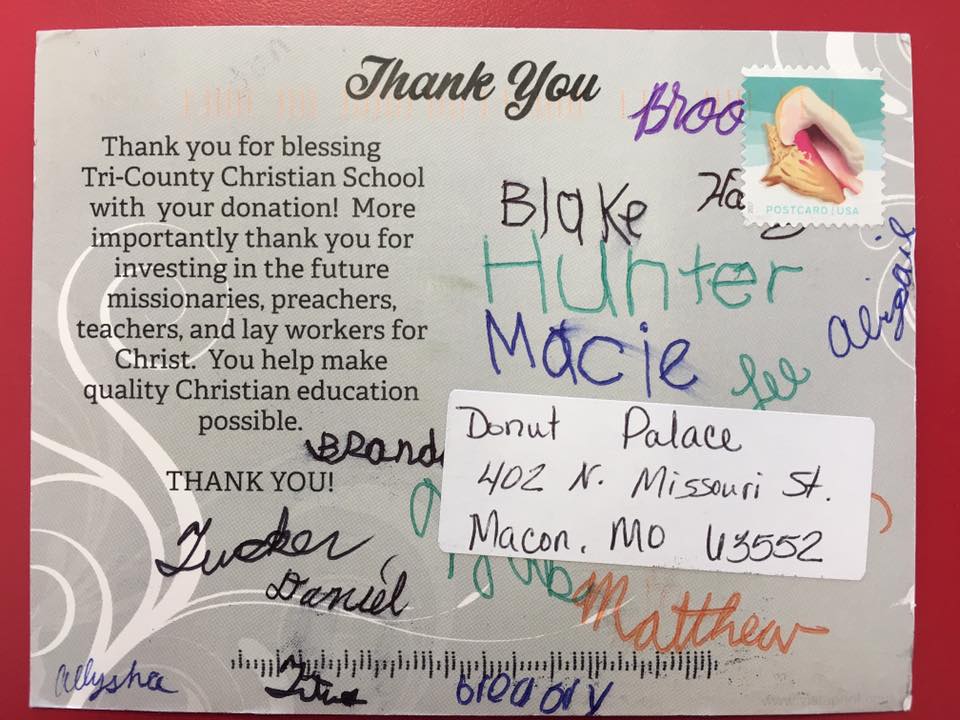 Thank You
Thank you for blessing
Tri-County Christian School
with your donation! More
importantly thank you for
investing in the future
missionaries, preachers,
teachers, and lay workers for
Christ. You help make
quality Christian education
possible.
THANK YOU!
Broo
POSTCARD | USA
Blake
Ha
Hunter
Abigail
Macie
Donut Palace
402 N. Missouri St.
Macon, MO 63552
Brand
Tucker
Daniel
Matthew
Allysha
Titus